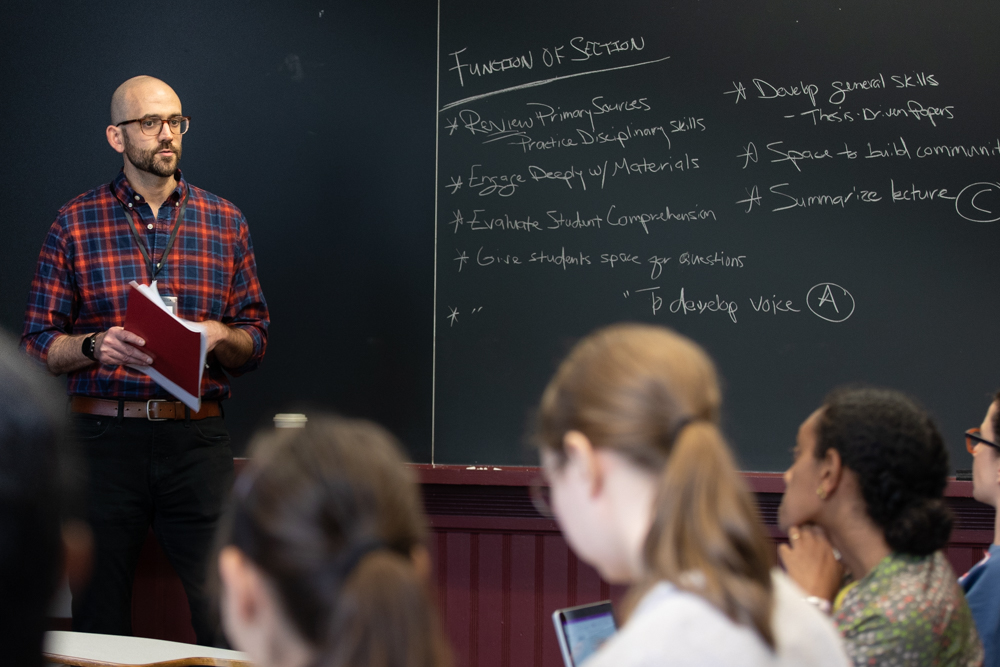 FUNCTION OF SECTION
* Review Primary Sources
- Practice Disciplinary skills
* Engage Deeply w/ Materials
* Evaluate Student Comprehension
* Give students space for questions
* " " To develop voice A
* Develop general skills
- Thesis-Driven Papers
* Space to build communit
* Summarize lecture C